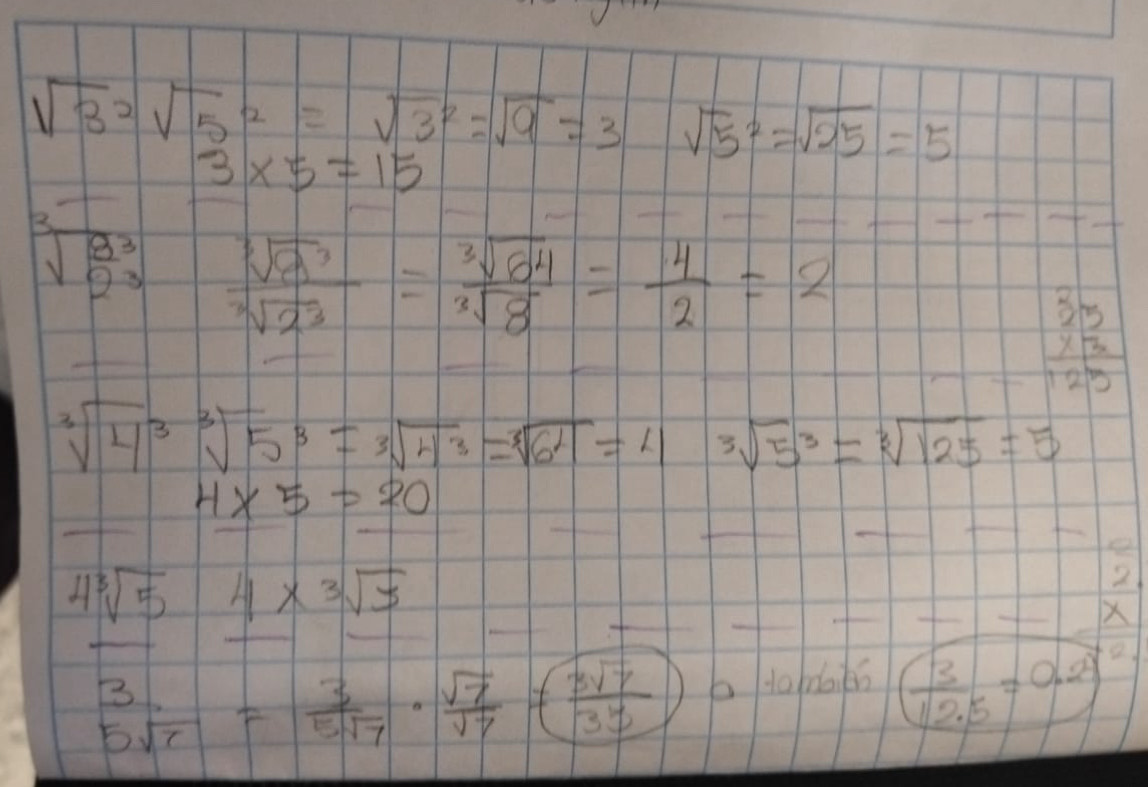 √3² √5² = √3² = √9 = 3 √5² = √25 = 5
3 × 5 = 15
³√8³/2³ ³√8³/³√2³ = ³√64/³√8 = 4/2 = 2
25
× 3
125
³√4³ ³√5³ = ³√4³ = ³√64 = 4 ³√5³ = ³√125 = 5
4 × 5 = 20
4³√5 4 × ³√5
2
×
3/5√7 = 3/5√7 · √7/√7 = 3√7/35 o también 3/12.5 = 0.2